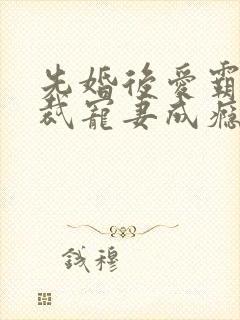 先婚後愛霸
裁寵妻成癮
钱穆